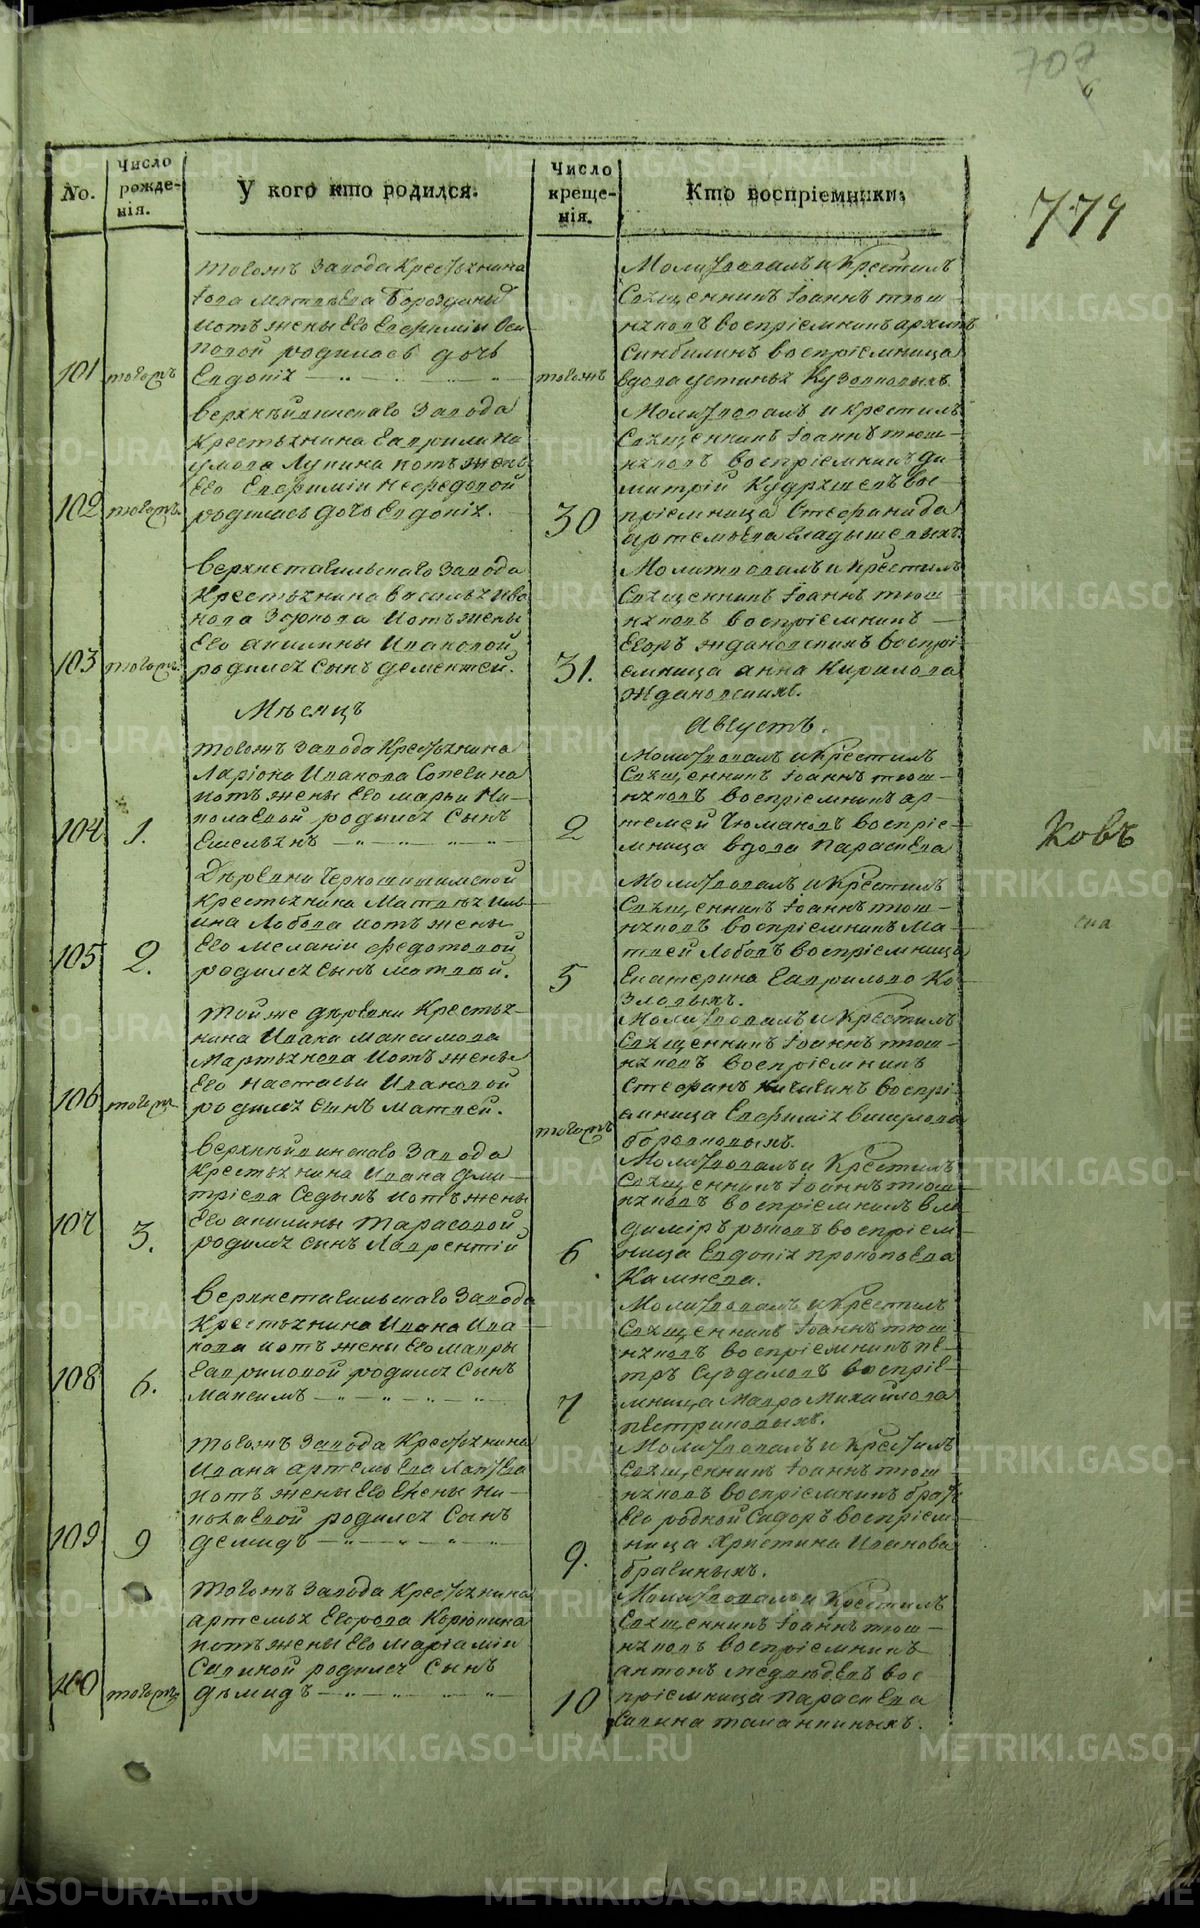 707
6
779
No.
Число рожде-нія.
У кого кто родился.
Число креще-нія.
Кто воспріемники.
101
тогожъ
тогожъ завода крестьянина
Іова Матвѣева
и отъ жены его Евфиміи Оси
повой родилась дочь
Евдокія
тогожъ
Молитвовалъ и крестилъ
Священникъ Іоаннъ тюш
няковъ воспріемникъ архипъ
воспріемница
вдова устинья Кузовковыхъ.
102
тогожъ.
верхнѣйвинскаго завода
крестьянина Гаврила На
умова Лупина и отъ жены
его Евфиміи Нефедовой
родилась дочь Евдокія.
30
Молитвовалъ и крестилъ
Священникъ Іоаннъ тюш-
няковъ воспріемникъ ди
митрій Кудряшевъ вос-
пріемница Стефанида
артемьева Гладышевыхъ.
103
тогожъ.
верхнетагильскаго завода
крестьянина василья ива
нова и отъ жены
его акилины Ивановой
родился сынъ дементей.
31.
Молитвовалъ и крестилъ
Священникъ Іоаннъ тюш
няковъ воспріемникъ
Егоръ ждановскихъ воспрі-
емница анна Кирилова
Ждановскихъ.
Мѣсяцъ
Августъ.
104
1.
тогожъ завода крестьянина
Ларіона Иванова Сопегина
и отъ жены его марьи Ни-
колаевой родился сынъ
Емельянъ
2
Молитвовалъ и крестилъ
Священникъ Іоаннъ тюш-
няковъ воспріемникъ ар-
темей Чюмаковъ воспріе-
мница вдова параскева
Ковъ
105
2.
Деревни Черношишимской
крестьянина Матвѣя Иль-
ина Лобова и отъ жены
его меланіи федотовой
родился сынъ матвѣй.
5
Молитвовалъ и крестилъ
Священникъ Іоаннъ тюш-
няковъ воспріемникъ ма-
твей Лобовъ воспріемница
Екатерина Гаврилова Ко-
зловыхъ.
106
тогожъ
той же деревни крестья-
нина Ивана максимова
Мартьянова и отъ жены
его настасьи Ивановой
родился сынъ матвей.
тогожъ
Молитвовалъ и крестилъ
Священникъ Іоаннъ тюш-
няковъ воспріемникъ
Стефанъ воспрі-
емница Евфимія
107
3.
верхнѣйвинскаго завода
крестьянина Ивана дми-
тріева Седыхъ и отъ жены
его акилины тарасовой
родился сынъ Лаврентій
6
Молитвовалъ и крестилъ
Священникъ Іоаннъ тюш
няковъ воспріемникъ вла
димиръ рыковъ воспріем-
ница Евдокія прокопьева
108
6.
Верхнетагильскаго завода
крестьянина Ивана Ива
нова и отъ жены его мавры
Гавриловой родился сынъ
максимъ
7
Молитвовалъ и крестилъ
Священникъ Іоаннъ тюш
няковъ воспріемникъ пе-
тръ Суздаловъ воспріе-
мница Мавра Михайлова
пестриковыхъ.
109
9
тогожъ завода крестьянина
Ивана артемьева Лаптева
и отъ жены его Елены Ни-
колаевой родился сынъ
демидъ
9.
Молитвовалъ и крестилъ
Священникъ Іоаннъ тюш
няковъ воспріемникъ братъ
его родной Сидоръ воспріем-
ница Христина Иванова
брагиныхъ.
100
тогожъ
тогожъ завода крестьянина
артемья Егорова Корюкина
и отъ жены его маріаміи
Савиной родился сынъ
дѣмидъ
10
Молитвовалъ и крестилъ
Священникъ Іоаннъ тюш-
няковъ воспріемникъ
антонъ медвѣдевъ вос
пріемница параскева
Савина таланкиныхъ.
METRIKI.GASO-URAL.RU